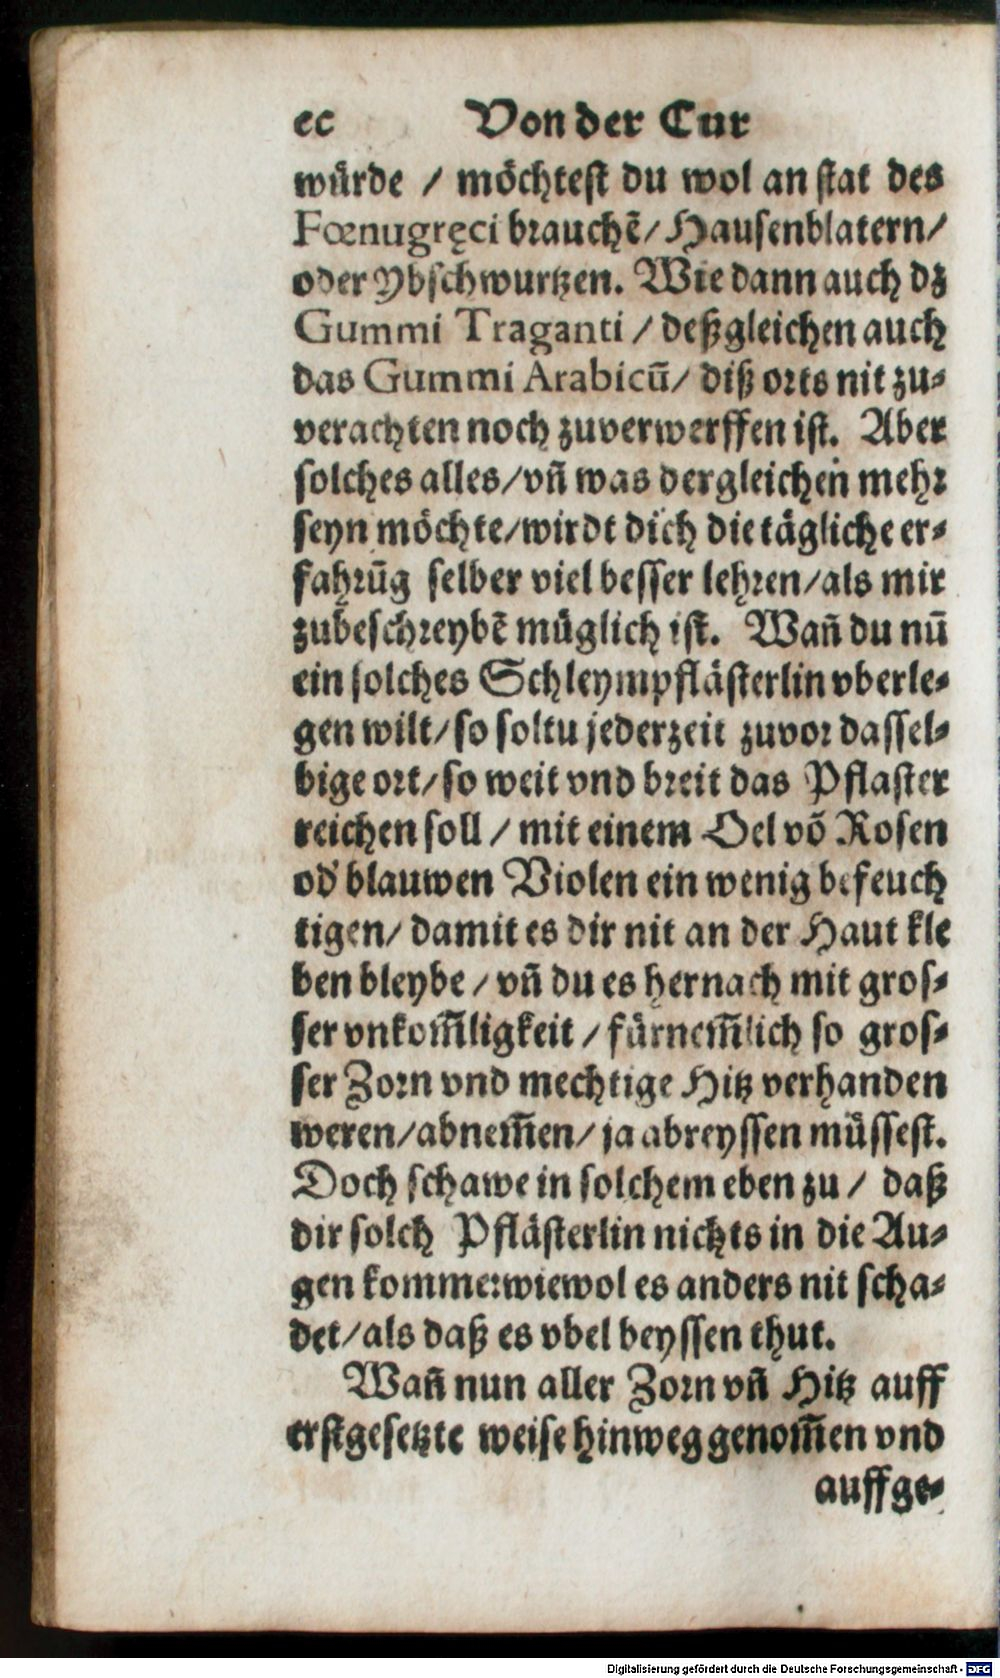 ec Von der Cur
würde / möchtest du wol an stat des
Fœnugręci brauchē/ Hausenblatern/
oder Ybschwurtzen. Wie dann auch dz
Gummi Traganti / deßgleichen auch
das Gummi Arabicū/ diß orts nit zu-
verachten noch zuverwerffen ist. Aber
solches alles/vn̄ was dergleichen mehr
seyn möchte/wirdt dich die tägliche er-
fahrūg selber viel besser lehren/als mir
zubeschreybē müglich ist. Wan̄ du nū
ein solches Schleympflästerlin vberle-
gen wilt/so soltu jederzeit zuvor dassel-
bige ort/so weit vnd breit das Pflaster
reichen soll / mit einem Oel vō Rosen
od' blauwen Violen ein wenig befeuch
tigen/ damit es dir nit an der Haut kle
ben bleybe / vn̄ du es hernach mit gros-
ser vnkom̄ligkeit / fürnem̄lich so gros-
ser Zorn vnd mechtige Hitz verhanden
weren/abnem̄en/ ja abreyssen müssest.
Doch schawe in solchem eben zu / daß
dir solch Pflästerlin nichts in die Au-
gen komme:wiewol es anders nit scha-
det/als daß es vbel beyssen thut.
Wan̄ nun aller Zorn vn̄ Hitz auff
erstgesetzte weise hinweg genom̄en vnd
auffge-
Digitalisierung gefördert durch die Deutsche Forschungsgemeinschaft - DFG